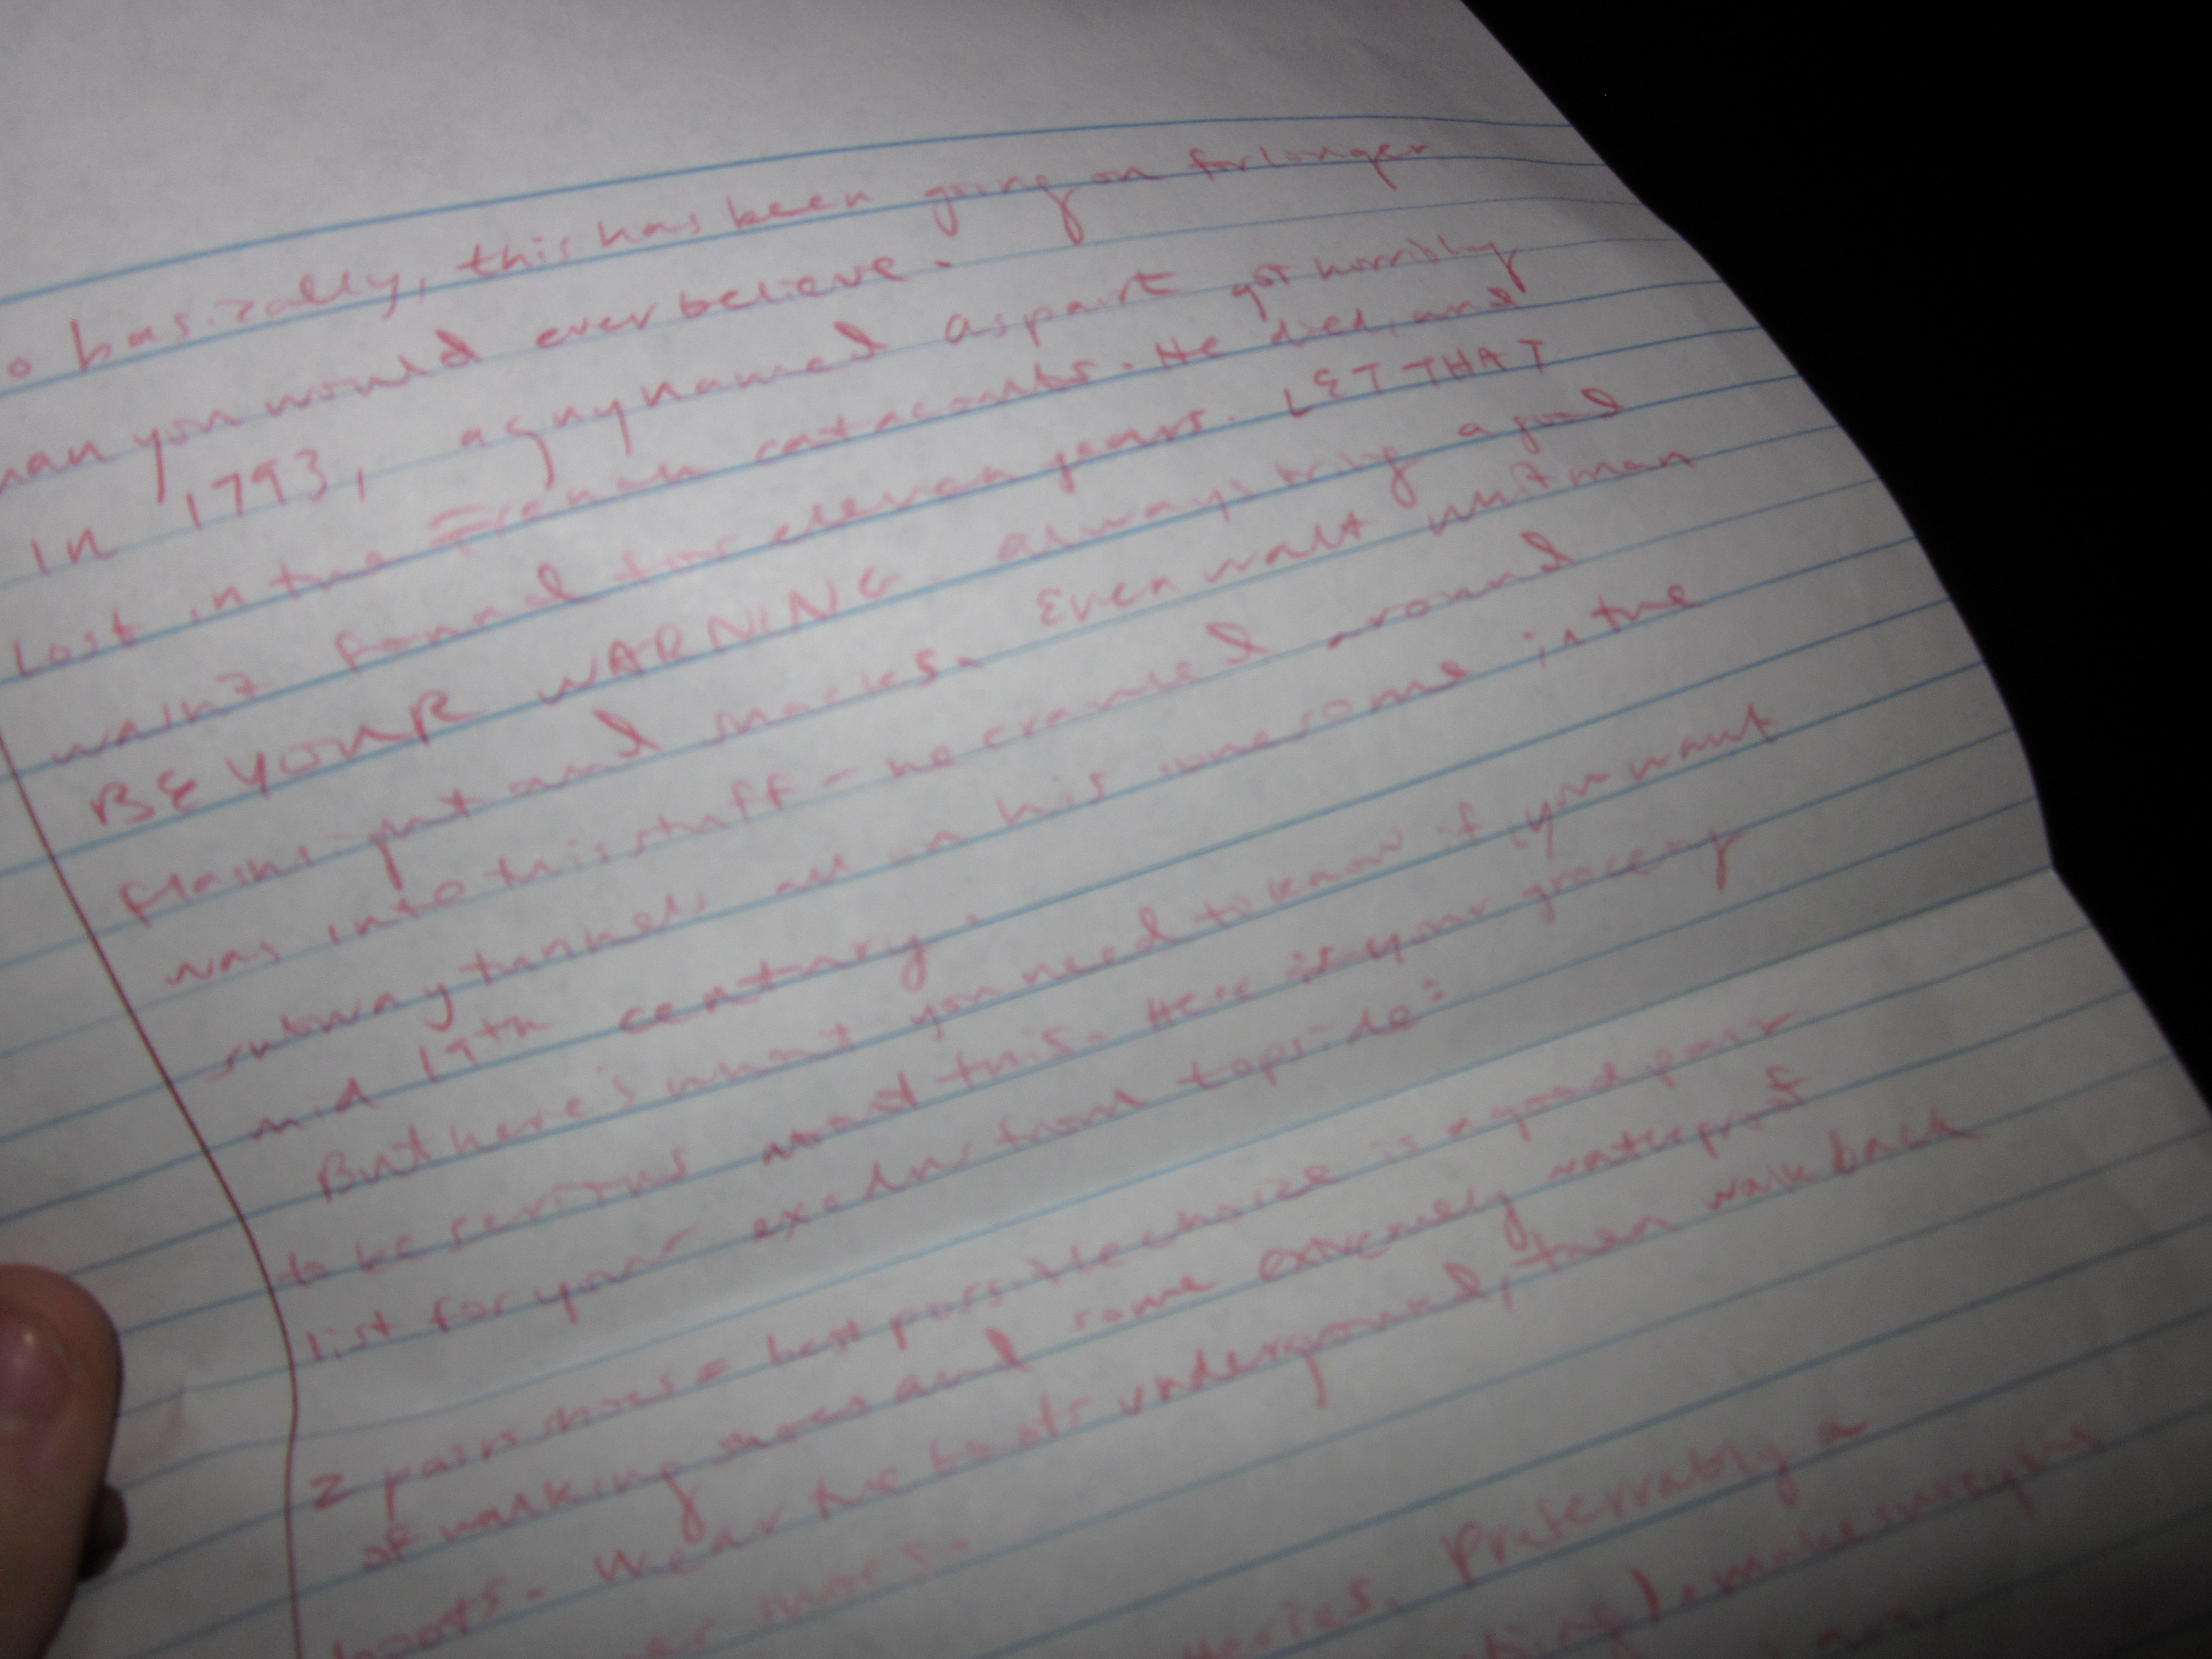 o basically, this has been going on for longer
han you would ever believe.
In 1793, a guy named aspairt got horribly
Lost in the French catacombs. He died, and
wasn't found for eleven years. LET THAT
BE YOUR WARNING. always bring a good
flashlight and snacks. Even walt whitman
was into this stuff - he crawled around
subway tunnels all on his lonesome in the
mid 19th century.
But here's what you need to know if you want
to be serious about this. Here is your grocery
list for your exodus from topside:
2 pairs shoes = best possible choice is a good pair
of walking shoes and some extremely waterproof
boots. Wear the boots underground, then walk back
er shoes.
tteries. Preferrably a
king). make sure you